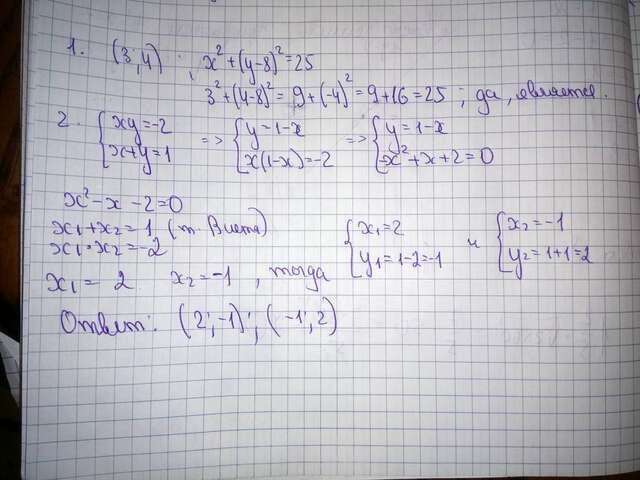 1. (3;4) ; x² + (y-8)² = 25
3² + (4-8)² = 9 + (-4)² = 9 + 16 = 25 ; да, является.
2. { xy = -2 => { y = 1-x => { y = 1-x
x+y = 1 x(1-x) = -2 -x² + x + 2 = 0
x² - x - 2 = 0
x₁ + x₂ = 1 (т. Виета)
x₁ · x₂ = -2
x₁ = 2 x₂ = -1 , тогда { x₁ = 2 и { x₂ = -1
y₁ = 1-2 = -1 y₂ = 1+1 = 2
Ответ: (2; -1); (-1; 2)